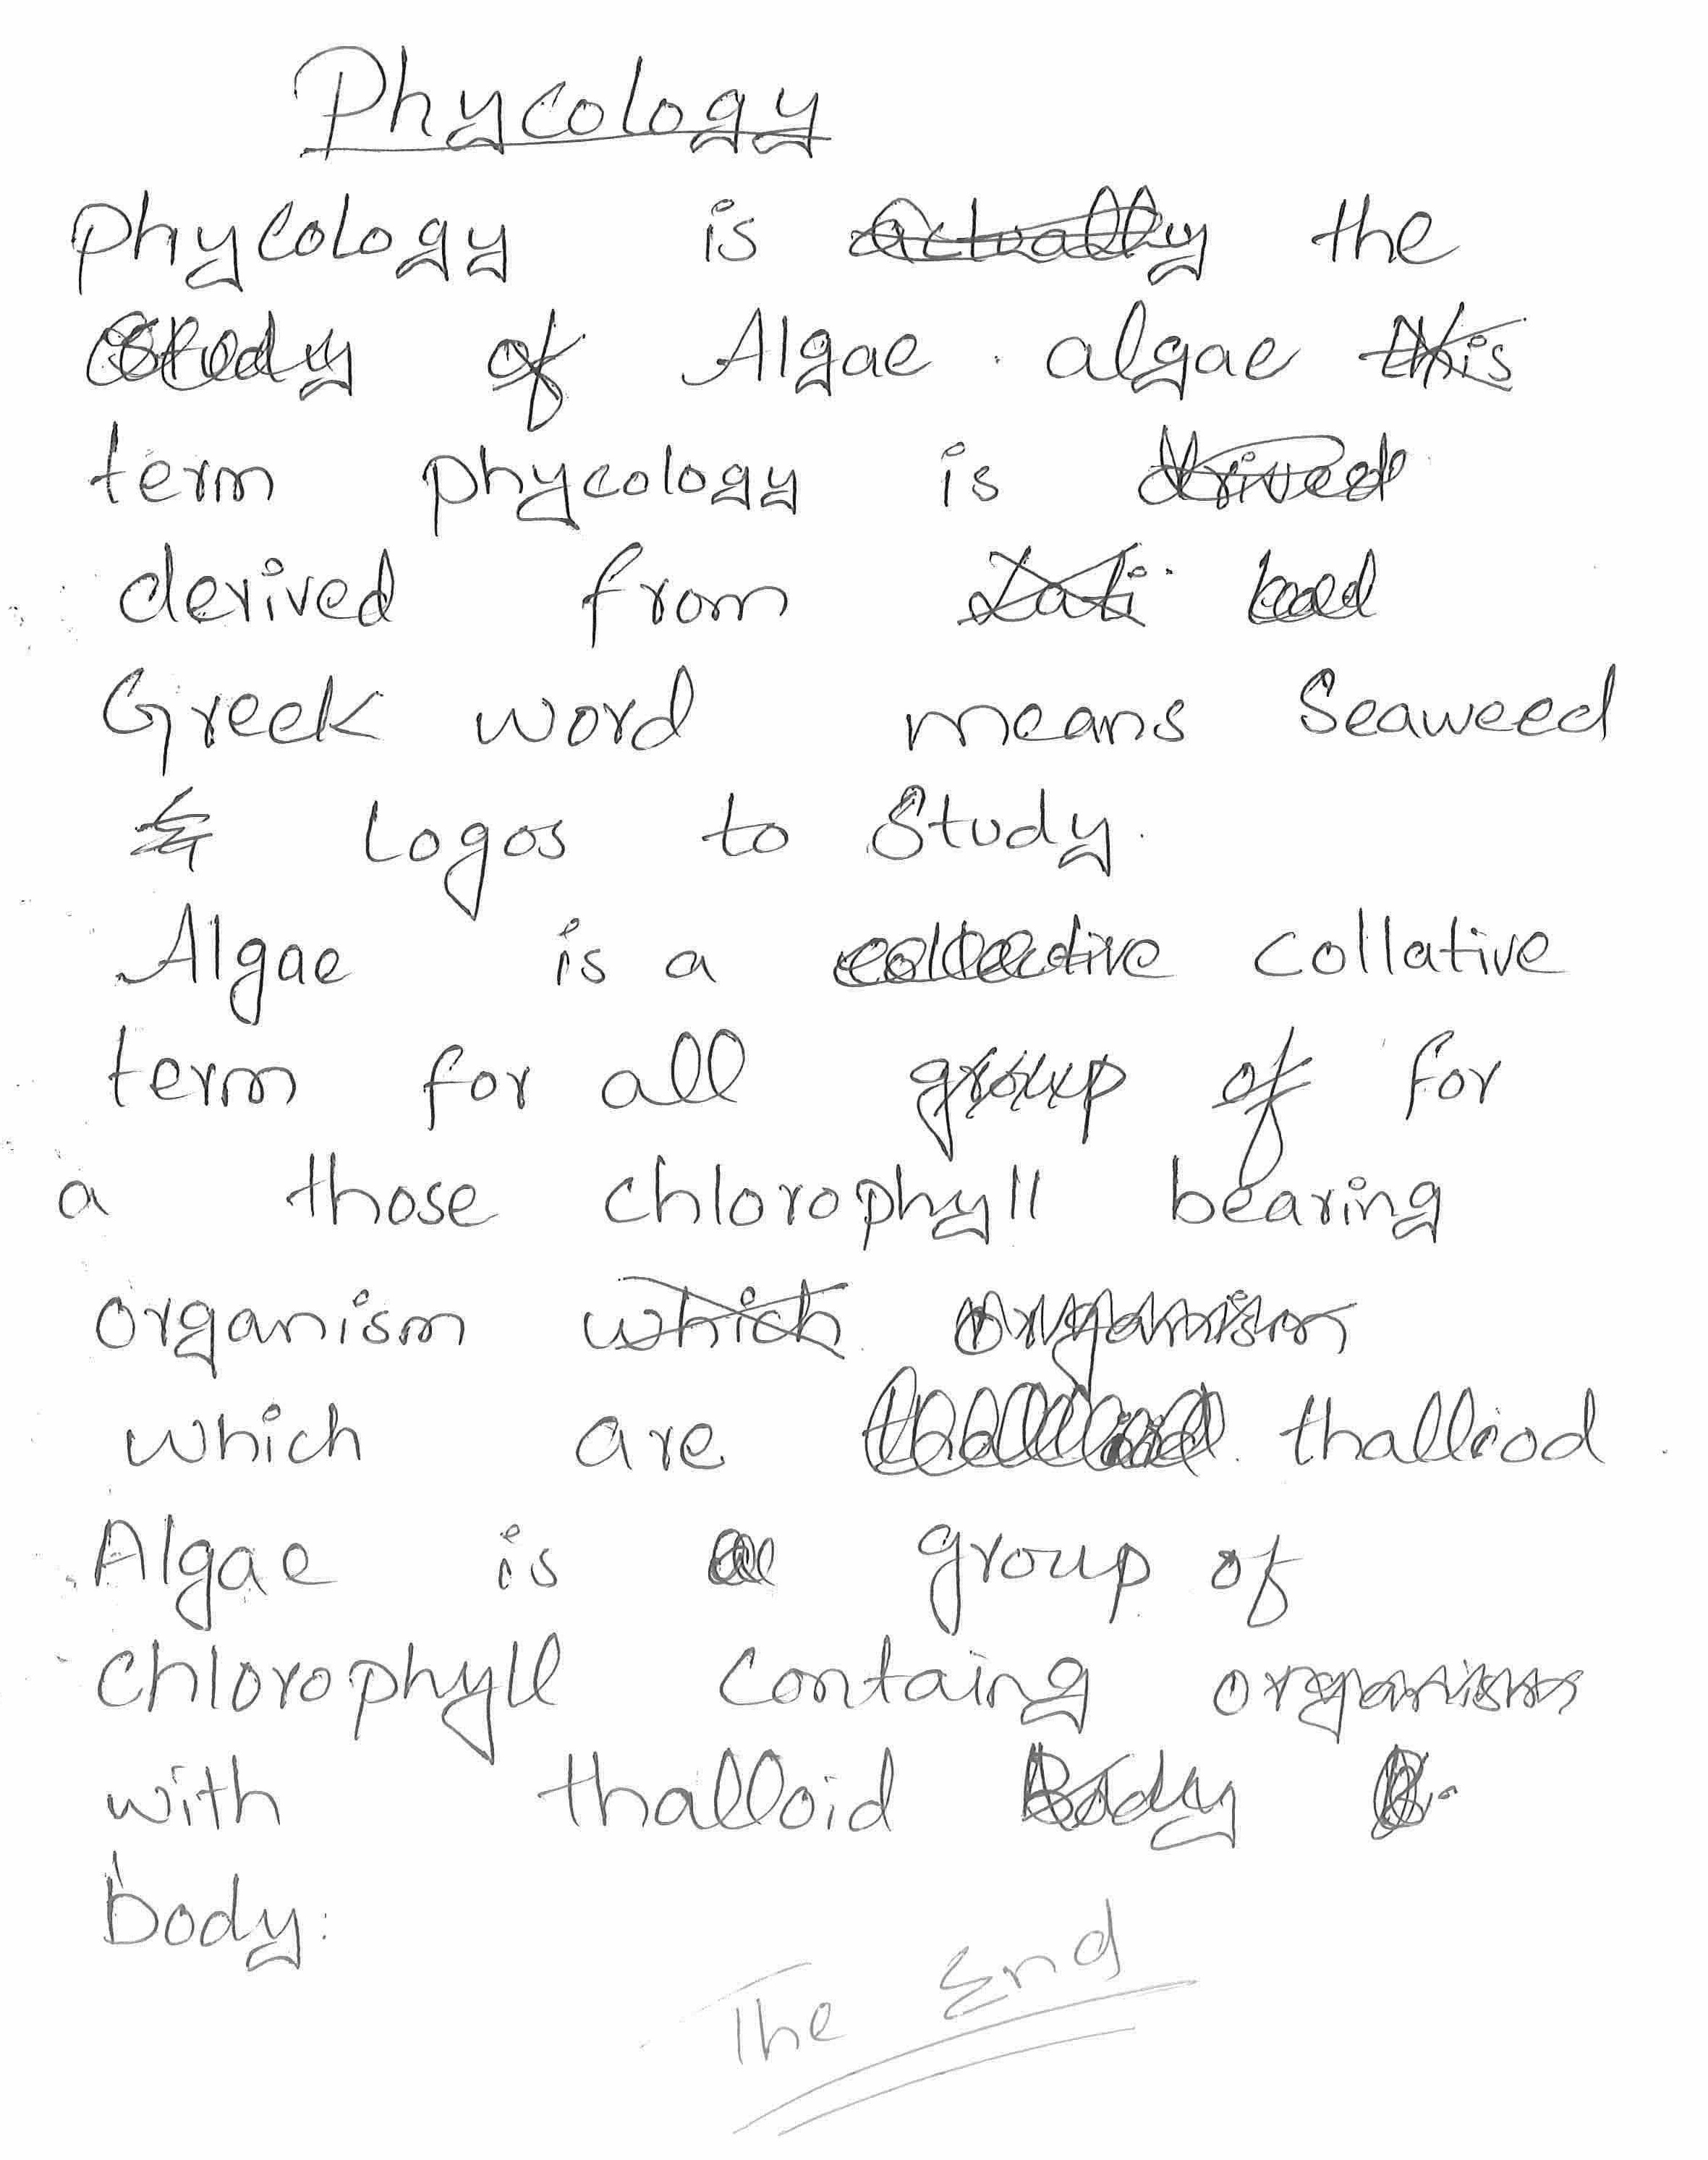 Phycology
phycology is actually the
Study of Algae . algae this
term phycology is drived
derived from Lati
Greek word means Seaweed
& Logos to Study.
Algae is a collective collative
term for all group of for
a those chlorophyll bearing
organism which organism
which are thalloid thalliod
Algae is a group of
chlorophyll containg organism
with thalloid Body B.
body.
The End